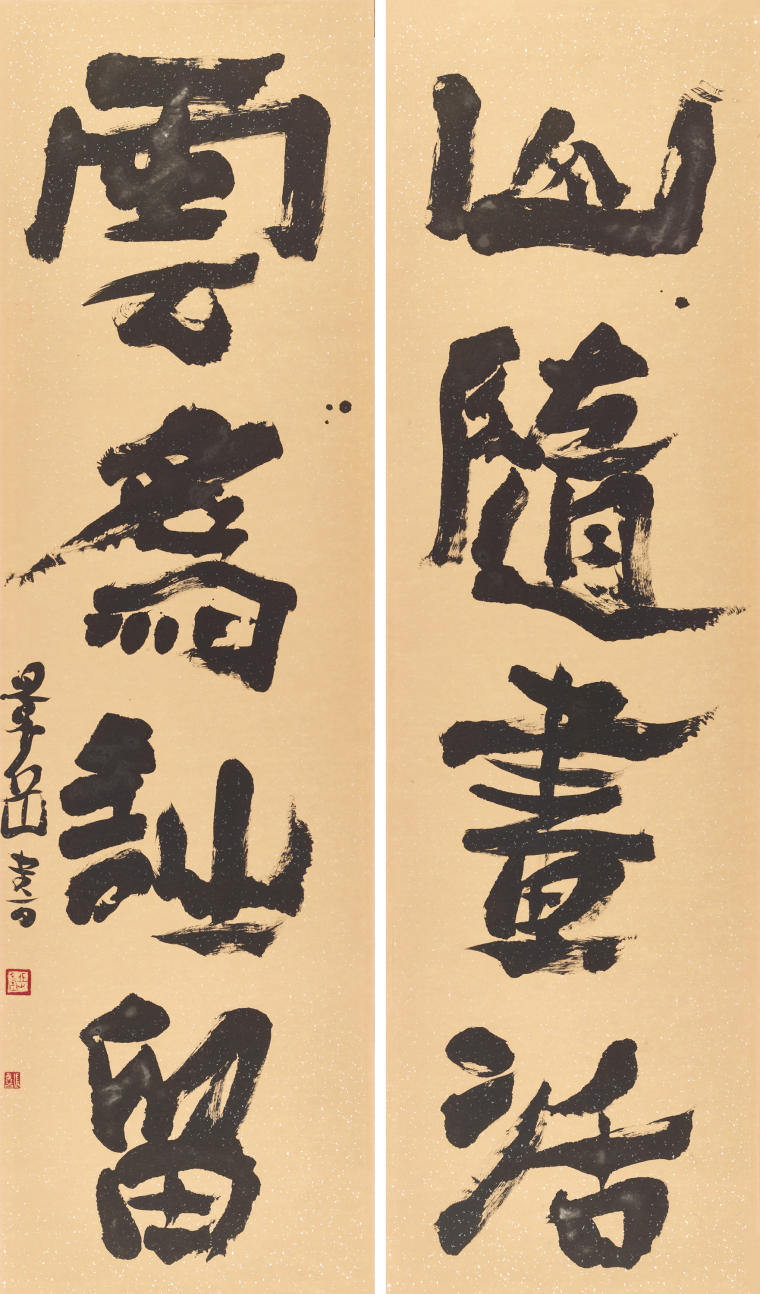 山隨畫活
雲爲詩留
景岳書